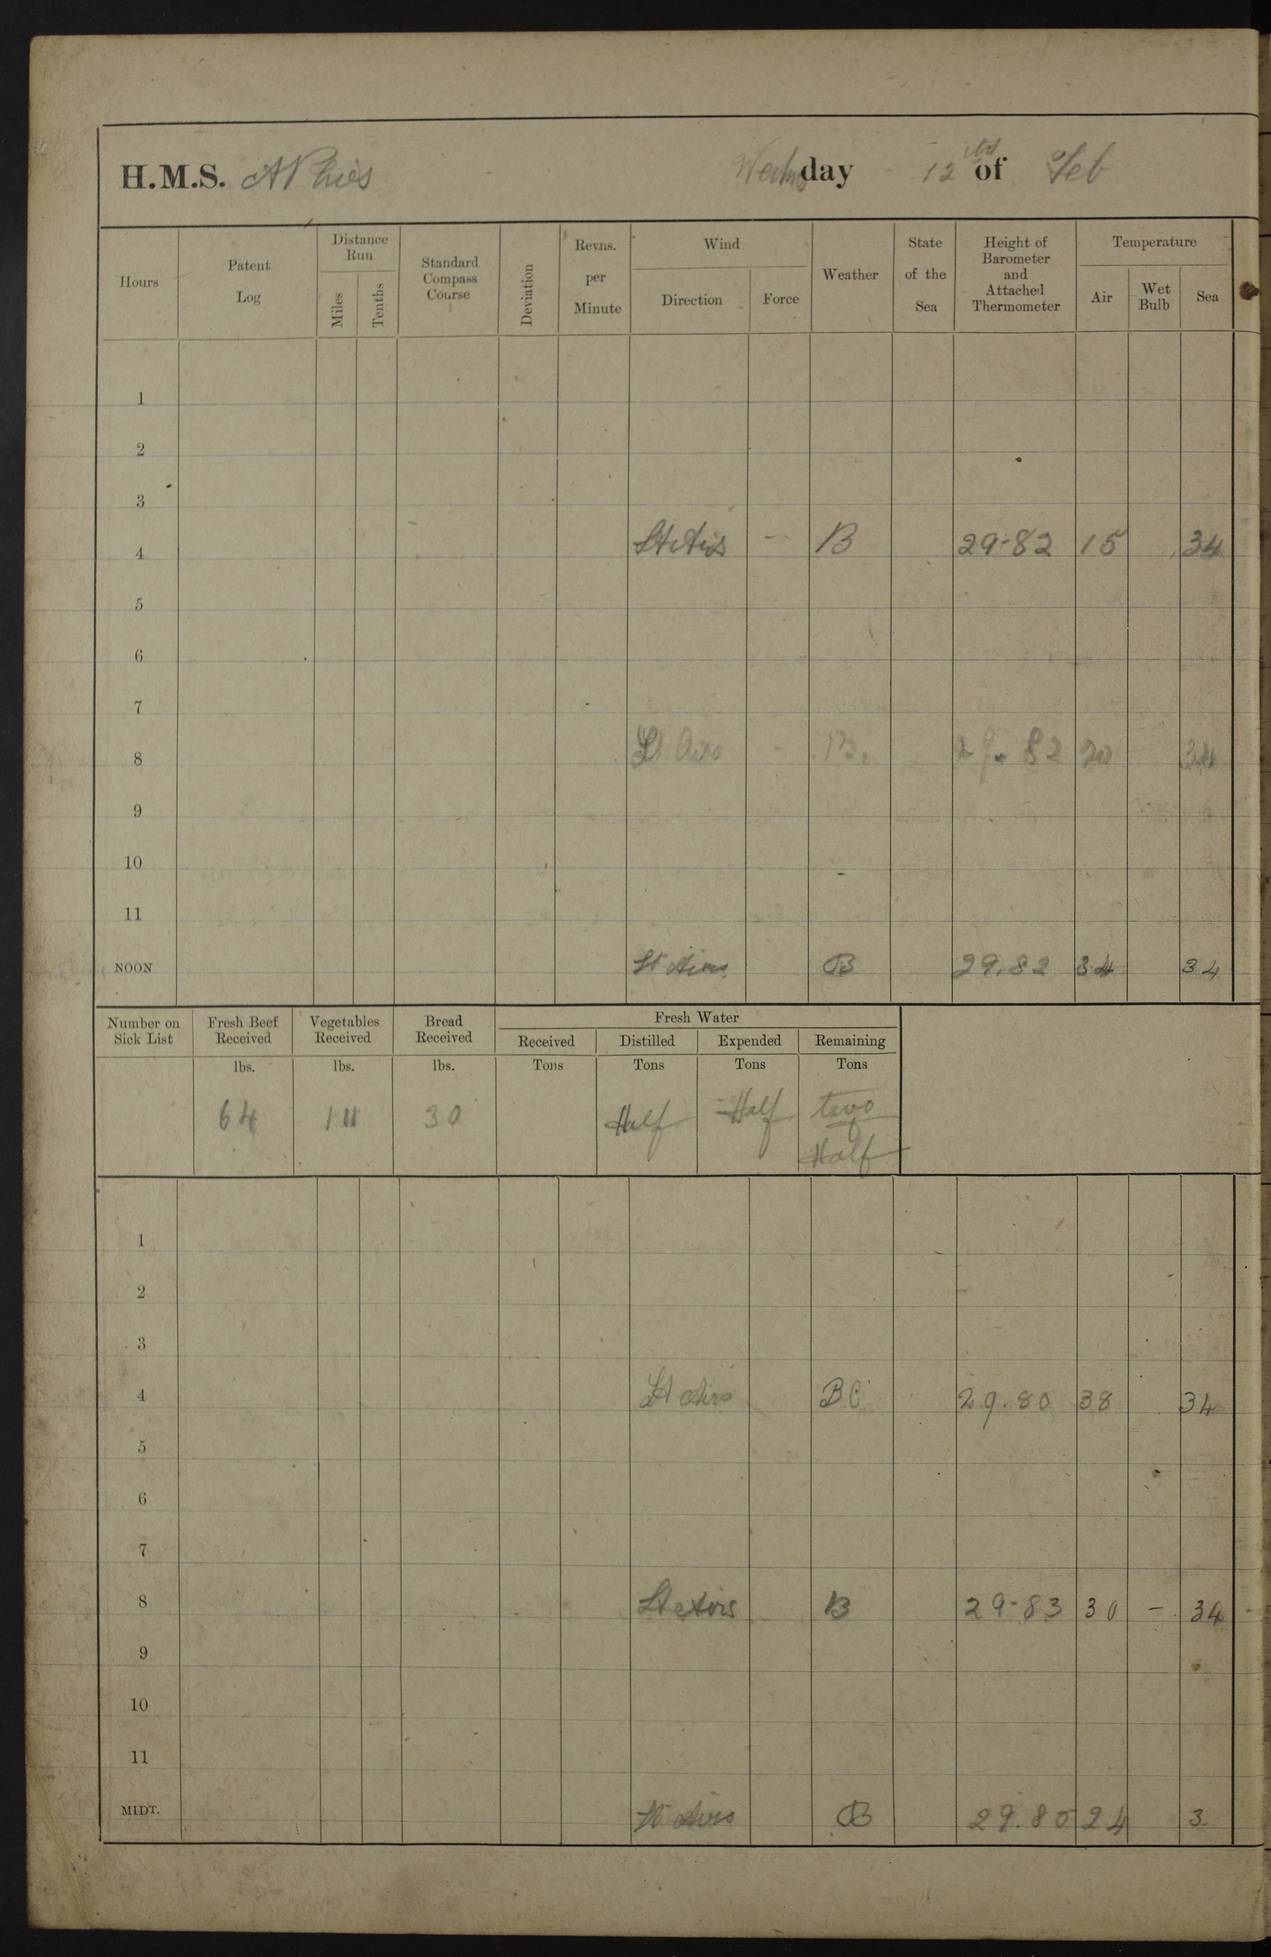 H.M.S. Wednsday 12th of Feb
Hours Patent Log Distance Run Miles Tenths Standard Compass Course Deviation Revns. per Minute Wind Direction Force Weather State of the Sea Height of Barometer and Attached Thermometer Temperature Air Wet Bulb Sea
1
2
3
4 Lt Airs - B 29-82 15 34
5
6
7
8 Lt Airs - B. 29.82 20 34
9
10
11
NOON Lt Airs B 29.82 34 34
Number on Sick List Fresh Beef Received Vegetables Received Bread Received Fresh Water
Received Distilled Expended Remaining
lbs. lbs. lbs. Tons Tons Tons Tons
64 30 Half Half two
Half
1
2
3
4 Lt Airs BC 29.80 38 34
5
6
7
8 Lt Airs B 29-83 30 - 34
9
10
11
MIDT. Lt Airs B 29.80 24 3